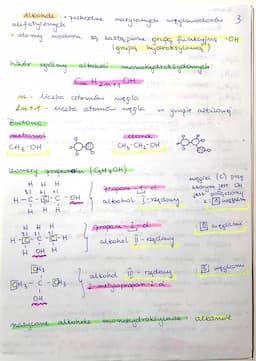 Alkohole - pochodne nasyconych węglowodorów 3
alifatycznych
• atomy wodoru są zastąpione grupą funkcyjną -OH
(grupą hydroksylową)
Wzór ogólny alkoholi monohydroksylowych:
CnH2n+1OH
n - liczba atomów węgla
2n+1 - liczba atomów w grupie alkilowej
Budowa:
metanol etanol
CH3-OH CH3-CH2-OH
Izomery propanolu (C3H7OH)
H H H
H-C-C-C-OH
H H H
propan-1-ol
alkohol I-rzędowy
węgiel (C) przy
którym jest OH
jest połączony
z 1 węglem
H H H
H-C-C-C-H
H OH H
propan-2-ol
alkohol II-rzędowy
2 węglami
CH3
CH3-C-CH3
OH
alkohol III-rzędowy
2-metylopropan-2-ol
3 węglami
nasycone alkohole monohydroksylowe alkanole